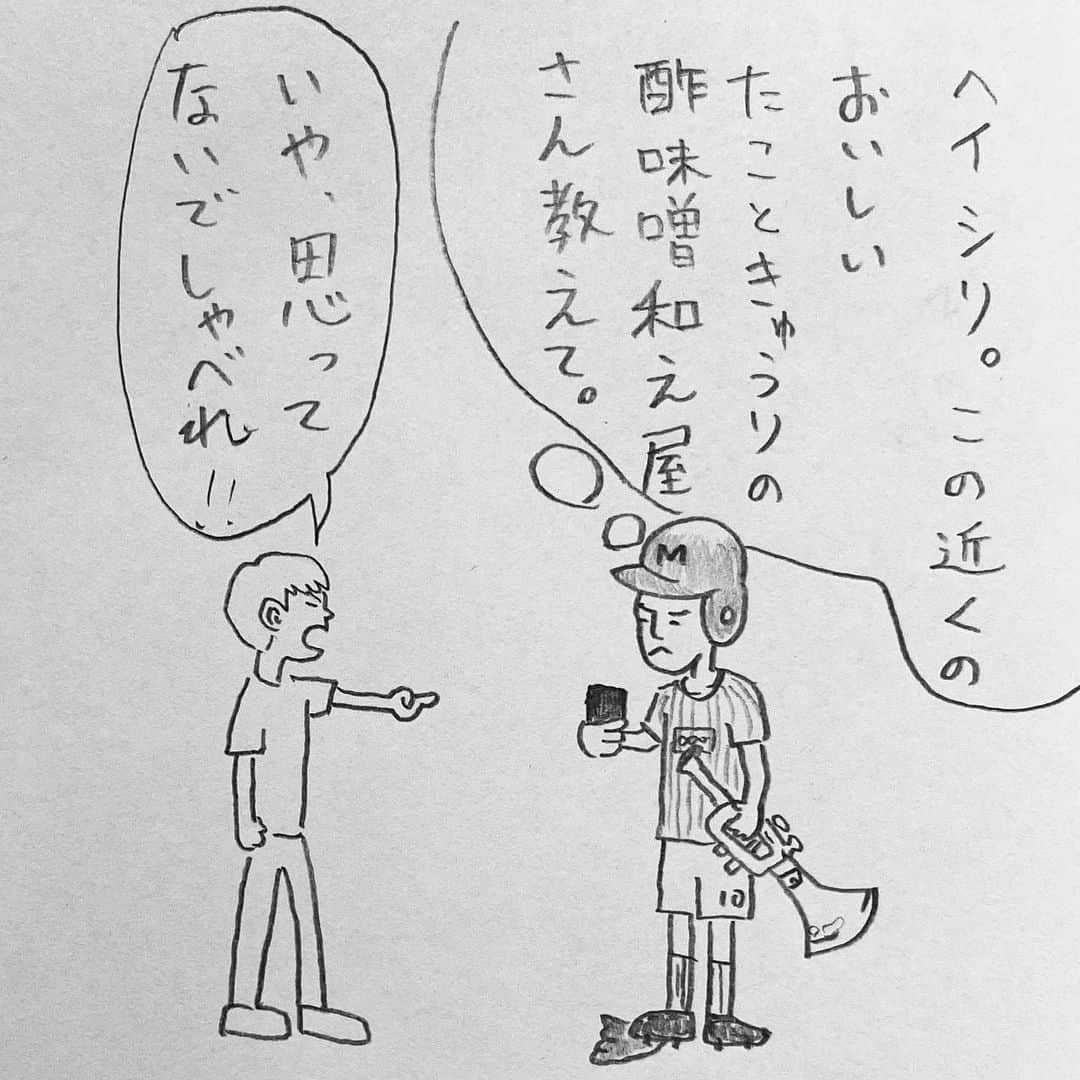 ヘイシリ。この近くの
おいしい
たこときゅうりの
酢味噌和え屋
さん教えて。
いや、思って
ないでしゃべれ!!
M
10